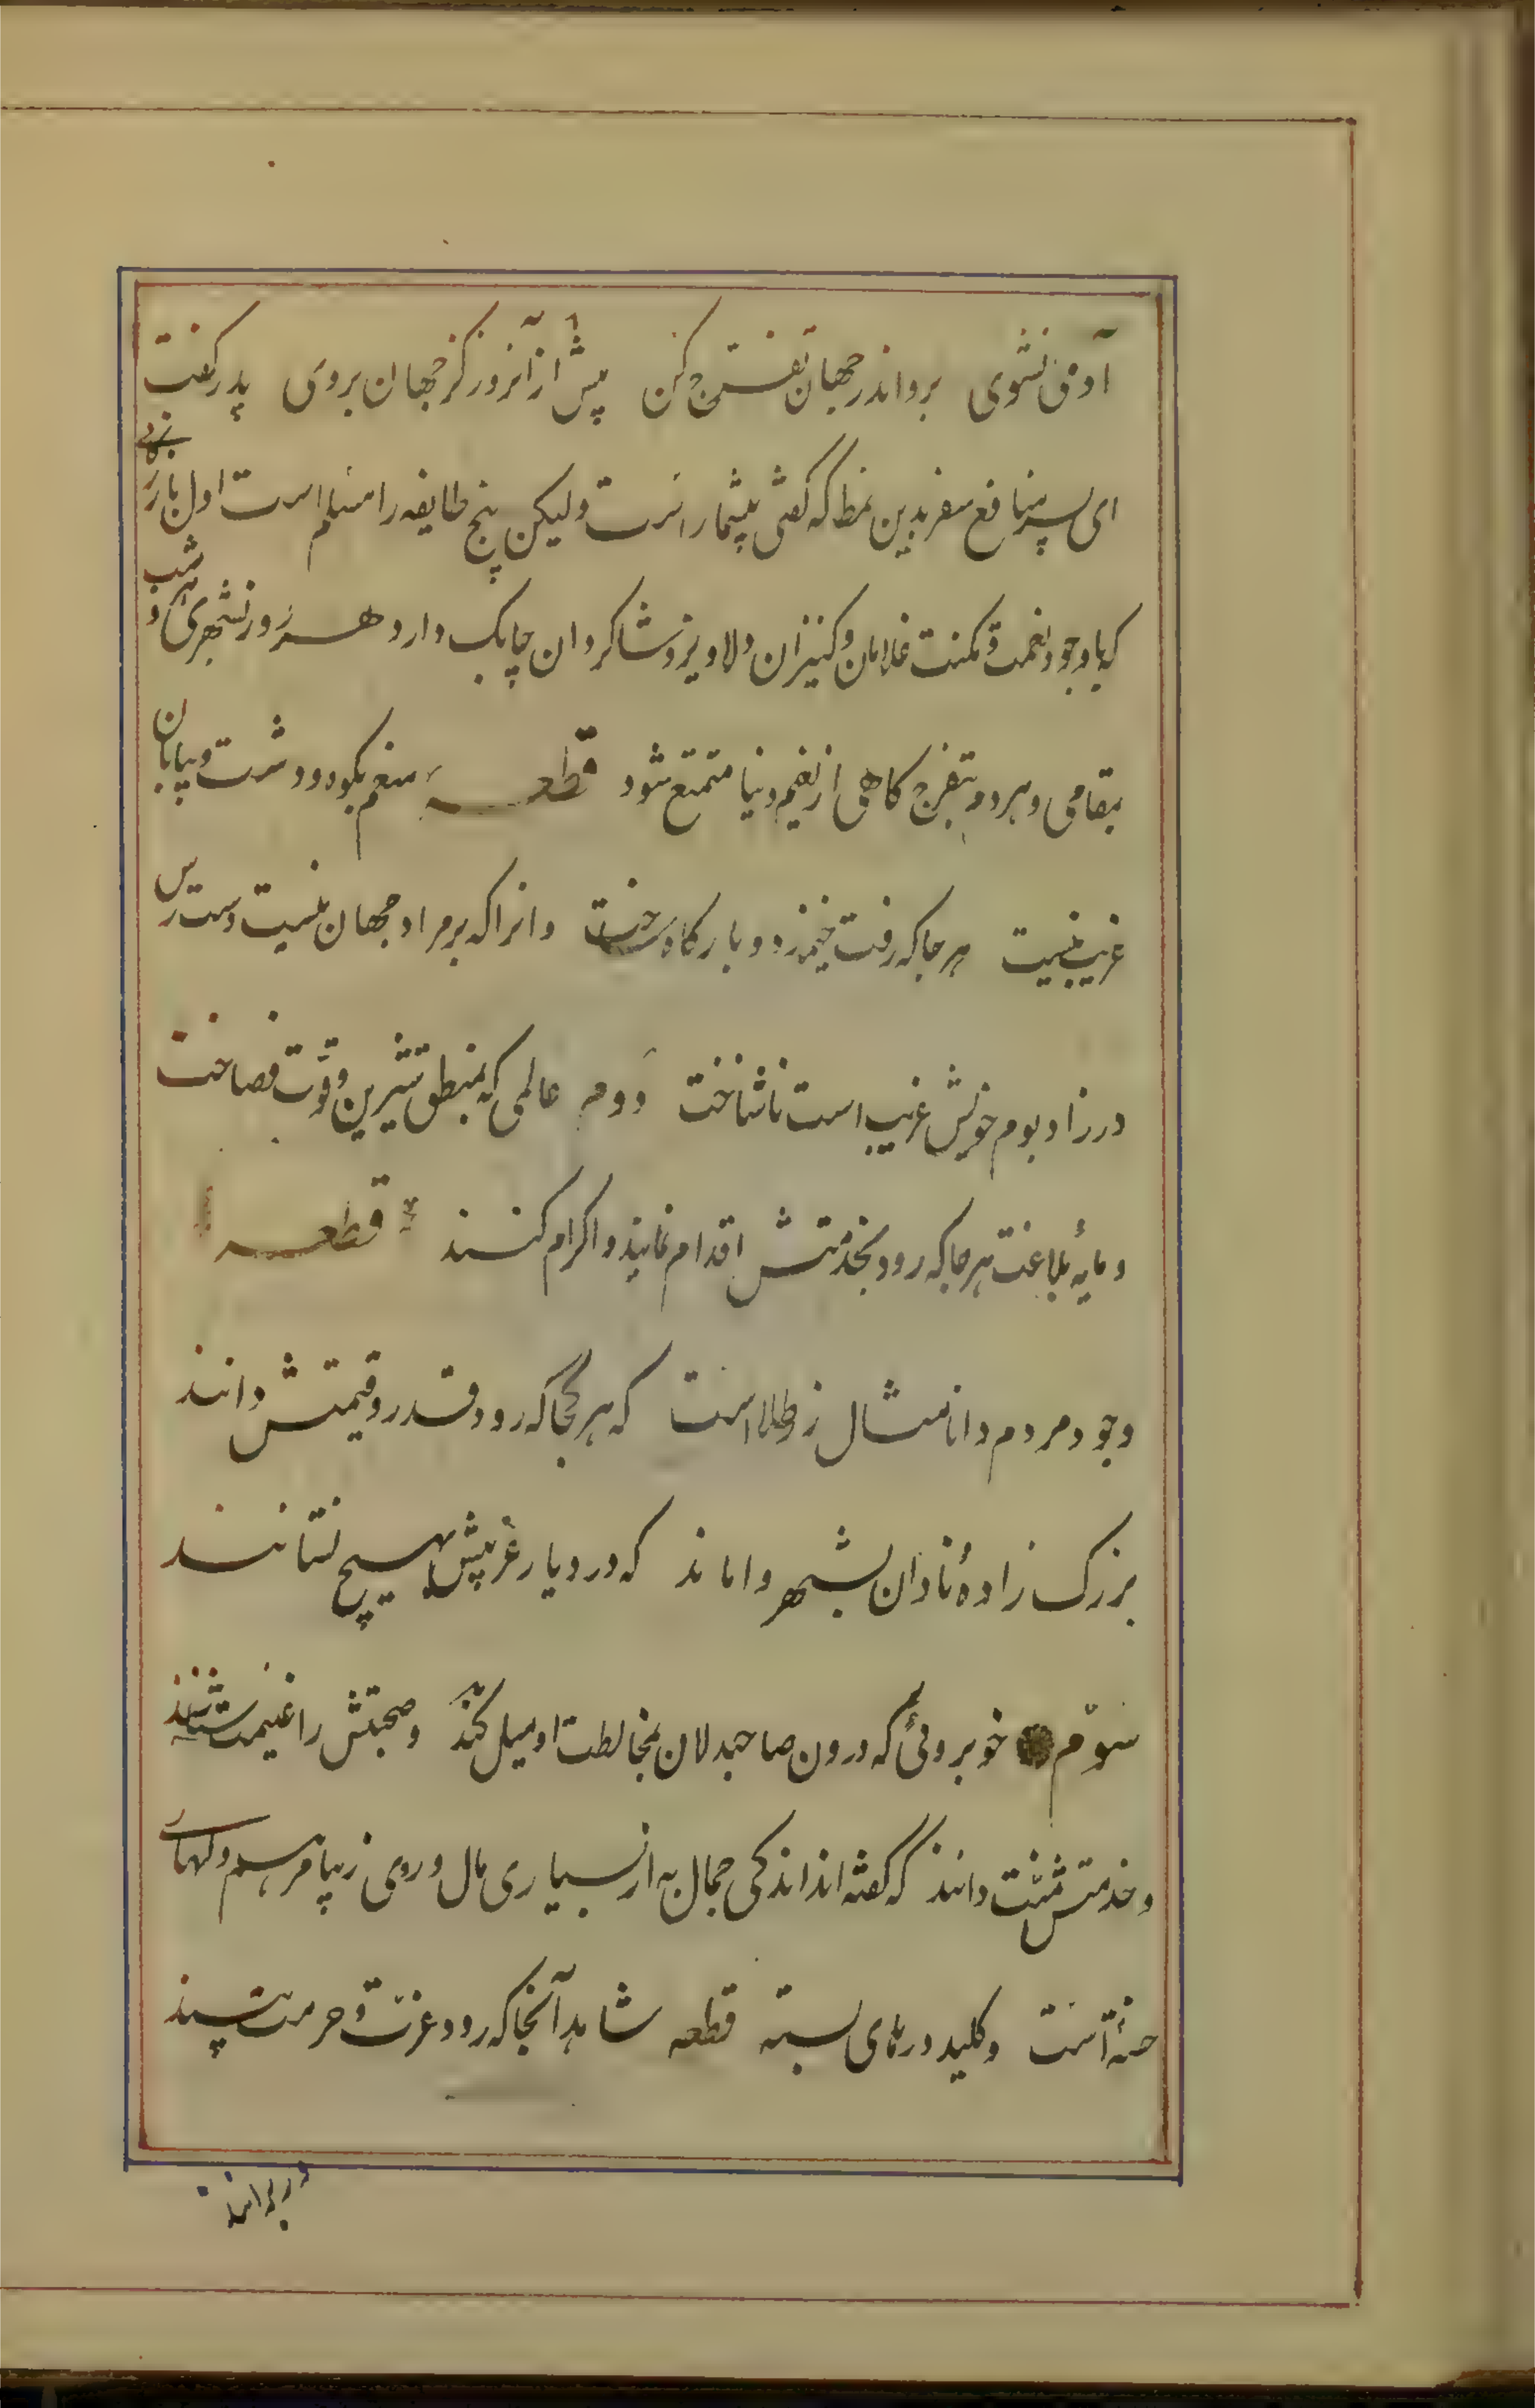 آدمی نشوی برو اندر جهان تفرج کن پیش از آنروز کز جهان بروی پدر گفت
ای پسر منافع سفر بدین نمط که گفتی بیشمار است ولیکن پنج طایفه را مسلم است اول بازرگانی
که با وجود نعمت و مکنت غلامان و کنیزان دلاویز و شاگردان چابک دارد هر روز بشهری و هر شب
بمقامی و هر دم بتفرج گاهی از نعیم دنیا متمتع شود قطعه منعم بکوه و دشت و بیابان
غریب نیست هر جا که رفت خیمه زد و بارگاه ساخت وانرا که بر مراد جهان نیست دست رس
در زاد بوم خویش غریب است ناشناخت دوم عالمی که بمنطق شیرین و قوت فصاحت
و مایهٔ بلاغت هر جا که رود بخدمتش اقدام نمایند و اکرام کنند قطعه
وجود مردم دانا مثال زر طلا است که هر کجا که رود قدر و قیمتش دانند
بزرگ زادهٔ نادان بشهر واماند که در دیار غریبش بهیچ نستانند
سوّم خوبروئی که درون صاحبدلان بمخالطت او میل کند و صحبتش را غنیمت شناسند
و خدمتش منّت دانند که گفته اند اندکی جمال به از بسیاری مال و روی زیبا مرهم دلهای
خسته است و کلید درهای بسته قطعه شاهد آنجا که رود عزت و حرمت بیند
ور برانند